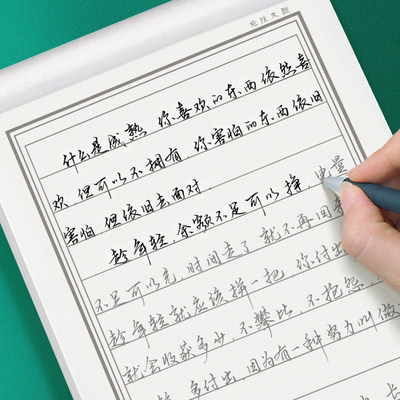 什么是成熟 你喜欢的东西依然喜
欢 但可以不拥有，你害怕的东西依旧
害怕 但依旧去面对.
趁年轻，余额不足可以挣，电量
不足可以充，时间走了 就不再回来
趁年轻就应该拼一把 你付出
就会收获多少，不攀比，不抱怨，
多付出，因为有一种努力叫做